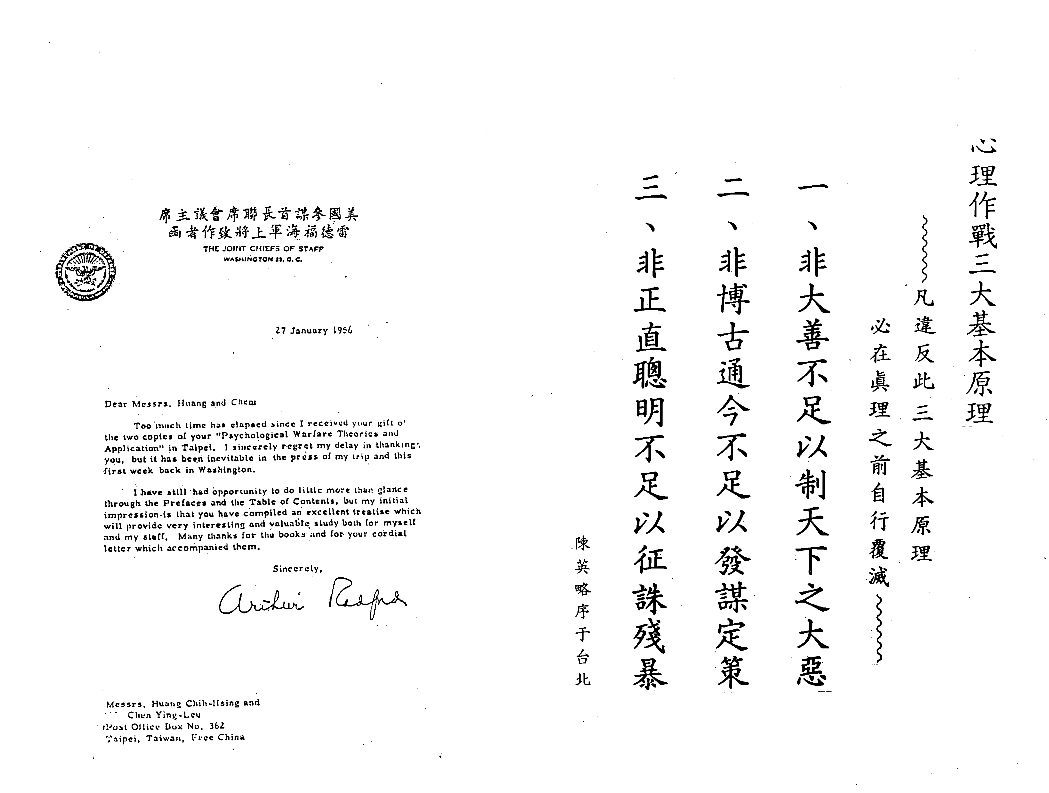 心理作戰三大基本原理
凡違反此三大基本原理
必在眞理之前自行覆滅
一、非大善不足以制天下之大惡
二、非博古通今不足以發謀定策
三、非正直聰明不足以征誅殘暴
陳英略序于台北
席主議會席聯長首謀參國美
函者作致將上軍海福德雷
THE JOINT CHIEFS OF STAFF
WASHINGTON 25, D. C.
27 January 1956
Dear Messrs. Huang and Chen:
Too much time has elapsed since I received your gift of
the two copies of your "Psychological Warfare Theories and
Application" in Taipei. I sincerely regret my delay in thanking
you, but it has been inevitable in the press of my trip and this
first week back in Washington.
I have still had opportunity to do little more than glance
through the Prefaces and the Table of Contents, but my initial
impression is that you have compiled an excellent treatise which
will provide very interesting and valuable study both for myself
and my staff. Many thanks for the books and for your cordial
letter which accompanied them.
Sincerely,
Arthur Radford
Messrs. Huang Chih-Hsing and
Chen Ying-Leu
Post Office Box No. 362
Taipei, Taiwan, Free China